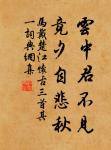 雲中君不見
竟夕自悲秋
馬戴楚江懷古三首其
一詞典網集